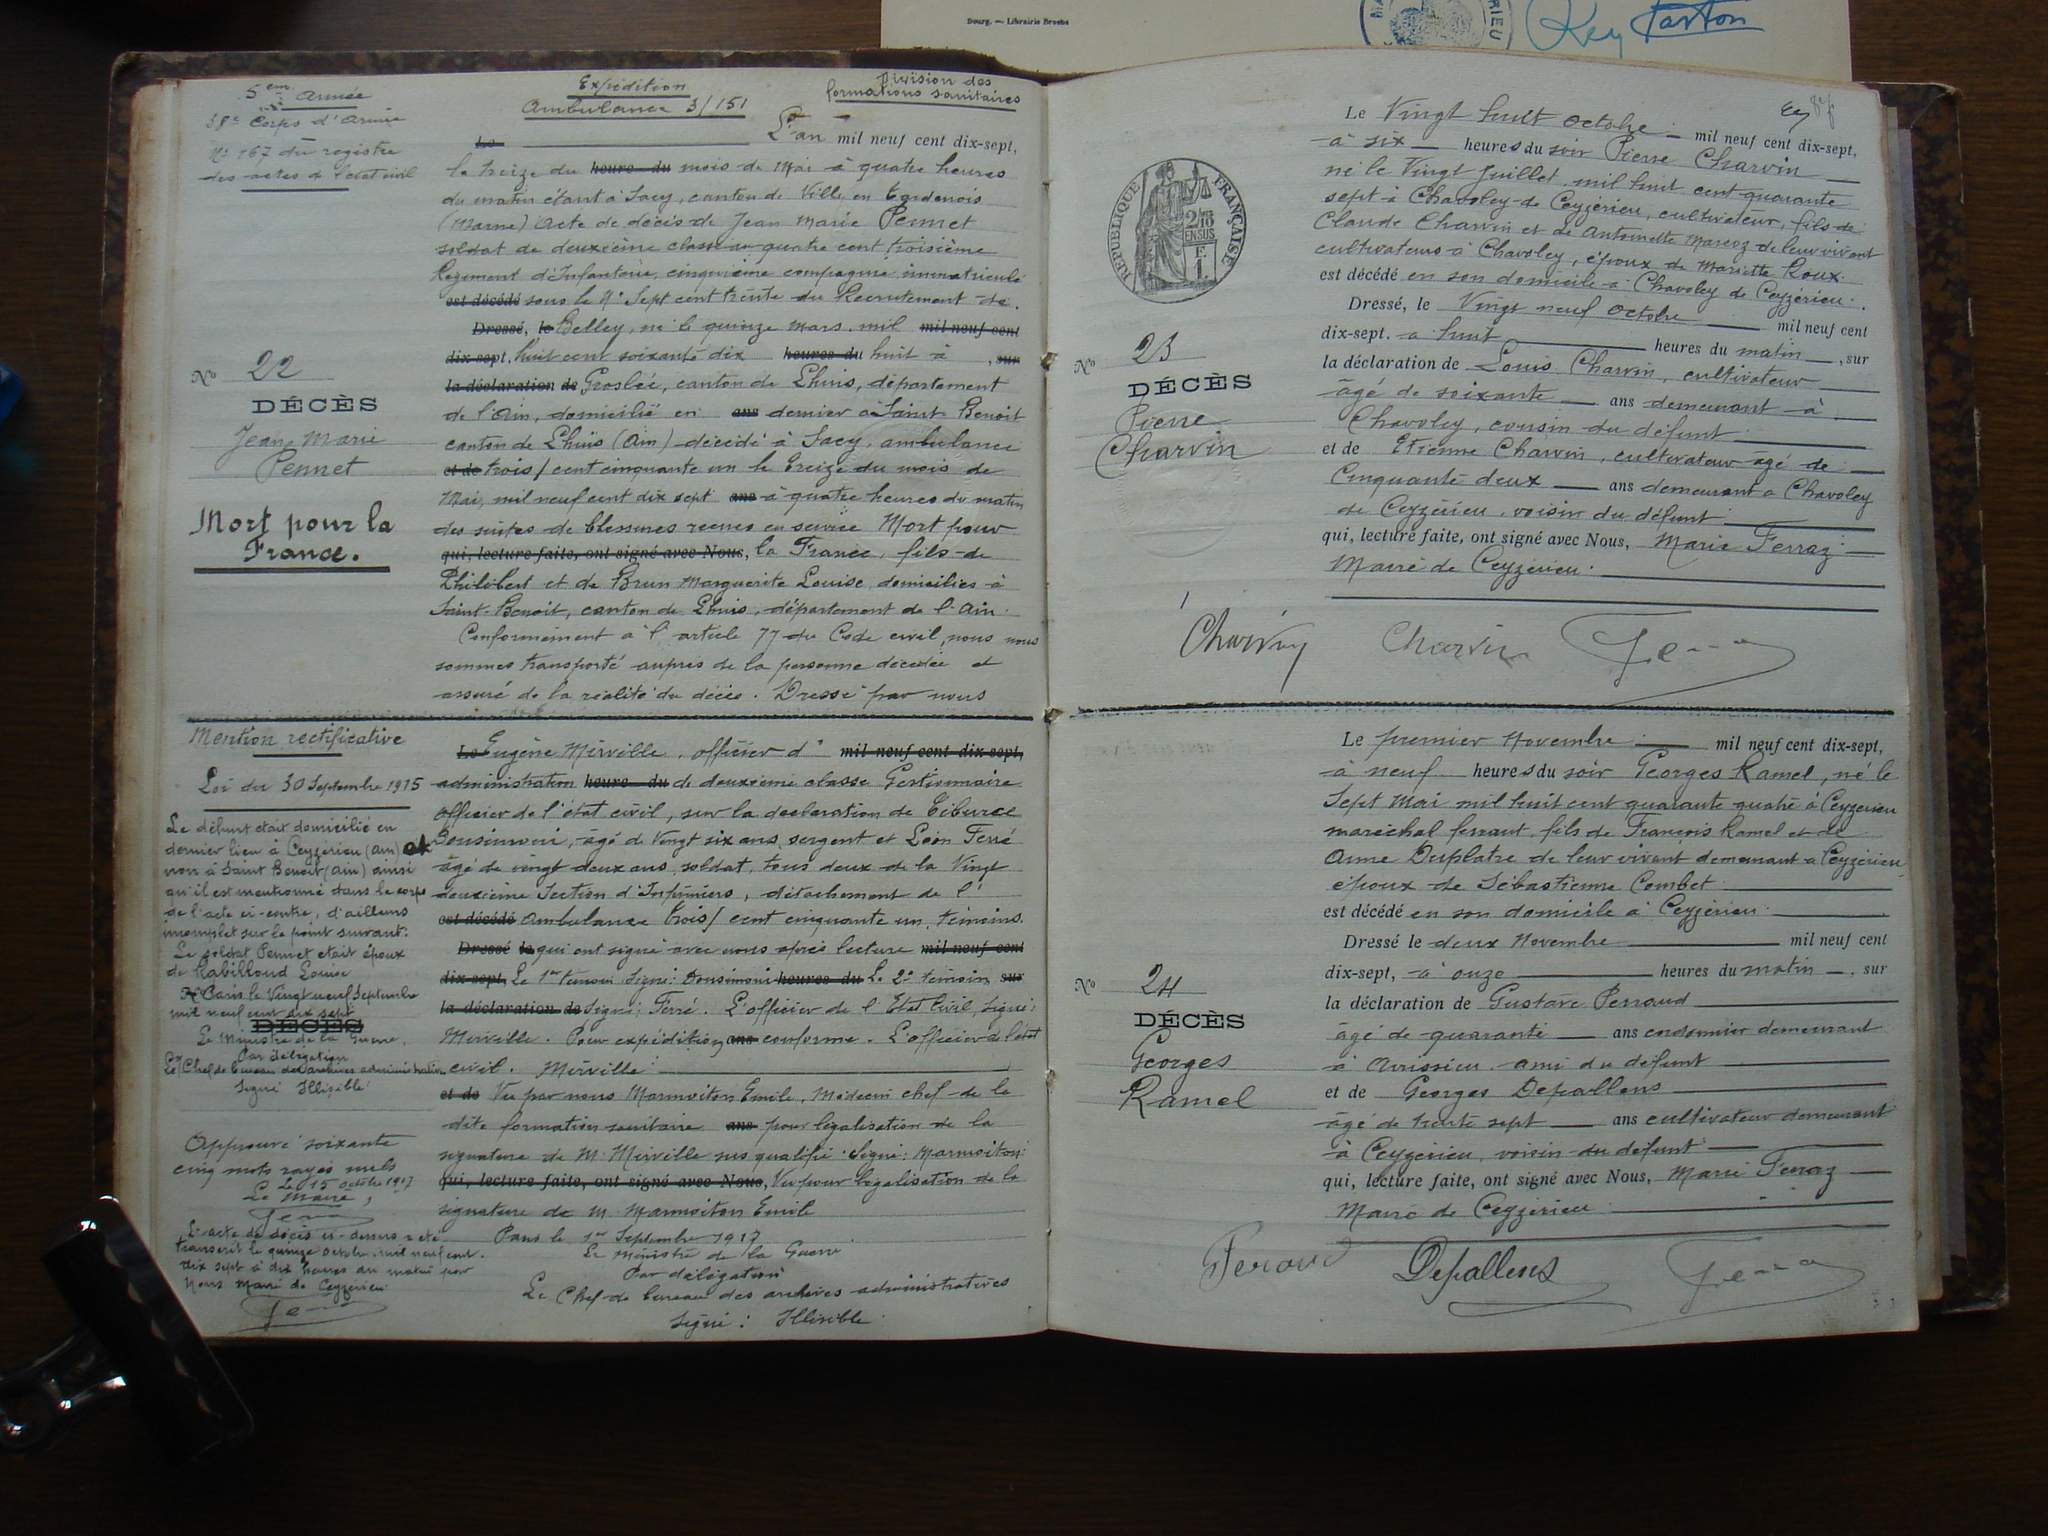 Bourg. — Librairie Brochs
RIEU
Rey Farton
5em Armée
38e Corps d'Armée
No 167 du registre
des actes de l'état civil
Expédition
Ambulance 3/151
Division des
formations sanitaires
No 22
DÉCÈS
Jean Marie
Pennet
Mort pour la
France.
Le L'an mil neuf cent dix-sept,
le treize du heure du mois de Mai à quatre heures
du matin étant à Sacy, canton de Ville en Tardenois
(Marne) Acte de décès de Jean Marie Pennet
soldat de deuxième classe au quatre cent troisième
Régiment d'Infanterie, cinquième compagnie, immatriculé
est décédé sous le No Sept cent trente du Recrutement de
Dressé, le Belley, né le quinze Mars mil mil neuf cent
dix-sept, huit cent soixante dix heures du huit à , sur
la déclaration de Groslée, canton de Lhuis, département
de l'Ain, domicilié en ans dernier à Saint Benoit
canton de Lhuis (Ain) décédé à Sacy, ambulance
et de trois/cent cinquante un le treize du mois de
Mai, mil neuf cent dix sept ans à quatre heures du matin
des suites de blessures recues en service Mort pour
qui, lecture faite, ont signé avec Nous, la France, fils de
Philibert et de Brun Marguerite Louise, domiciliés à
Saint-Benoit, canton de Lhuis, département de l'Ain.
Conformément à l'article 77 du Code civil, nous nous
sommes transporté auprès de la personne décédée et
assuré de la réalité du décès. Dressé par nous
Mention rectificative
Loi du 30 Septembre 1915
Le défunt était domicilié en
dernier lieu à Ceyzérieu (Ain) et
non à Saint Benoit (Ain) ainsi
qu'il est mentionné dans le corps
de l'acte ci-contre, d'ailleurs
incomplet sur le point suivant:
Le soldat Pennet était époux
de Rabilloud Louise
Paris le Vingt neuf Septembre
mil neuf cent dix sept
DÉCÈS
Le Ministre de la Guerre,
Par délégation
Le Chef de bureau des archives administratives
Signé Illisible
Approuvé soixante
cinq mots rayés nuls
Le 15 octobre 1917
Le Maire,
L'acte de décès ci-dessus a été
transcrit le quinze octobre mil neuf cent
dix sept à dix heures du matin par
Nous Maire de Ceyzérieu
Le Eugène Mirville, officier d' mil neuf cent dix-sept,
administration heure du de deuxième classe Gestionnaire
officier de l'état civil, sur la déclaration de Tiburce
Dousimoni, âgé de vingt six ans, sergent et Léon Ferré
âgé de vingt deux ans, soldat, tous deux de la Vingt
deuxième Section d'Infirmiers, détachement de l'
est décédé Ambulance trois/cent cinquante un, témoins.
Dressé le qui ont signé avec nous après lecture mil neuf cent
dix-sept, Le 1er témoin Signé: Dousimoni heures du Le 2e témoin sur
la déclaration de Signé: Ferré. L'officier de l'Etat Civil, Signé:
Mirville. Pour expédition ans conforme. L'officier de l'état
civil. Mirville.
et de Vu par nous Marmoiton Emile, Médecin chef de la
dite formation sanitaire ans pour légalisation de la
signature de M. Mirville sus qualifié. Signé: Marmoiton:
qui, lecture faite, ont signé avec Nous, Vu pour légalisation de la
signature de M Marmoiton Emile
Paris le 1er Septembre 1917
Le Ministre de la Guerre
Par délégation
Le Chef de bureau des archives administratives
Signé: Illisible
RÉPUBLIQUE FRANÇAISE
2/10
EN SUS
No 23
DÉCÈS
Pierre
Charvin
Le Vingt huit octobre mil neuf cent dix-sept,
à six heures du soir Pierre Charvin
né le Vingt Juillet mil huit cent quarante
sept à Chavoley de Ceyzérieu, cultivateur, fils de
Claude Charvin et de Antoinette Marcoz de leur vivant
cultivateurs à Chavoley, époux de Mariette Roux.
est décédé en son domicile à Chavoley de Ceyzérieu.
Dressé, le Vingt neuf octobre mil neuf cent
dix-sept. à huit heures du matin, sur
la déclaration de Louis Charvin, cultivateur
âgé de soixante ans demeurant à
Chavoley, cousin du défunt
et de Etienne Charvin, cultivateur âgé de
Cinquante deux ans demeurant à Chavoley
de Ceyzérieu, voisin du défunt
qui, lecture faite, ont signé avec Nous, Marie Ferraz
Maire de Ceyzérieu.
Charvin Charvin
No 24
DÉCÈS
Georges
Ramel
Le premier Novembre mil neuf cent dix-sept,
à neuf heures du soir Georges Ramel, né le
Sept Mai mil huit cent quarante quatre à Ceyzérieu
maréchal ferrant, fils de François Ramel et de
Anne Duplatre de leur vivant demeurant à Ceyzérieu,
époux de Sébastienne Combet
est décédé en son domicile à Ceyzérieu.
Dressé le deux Novembre mil neuf cent
dix-sept, à onze heures du matin, sur
la déclaration de Gustave Perroud
âgé de quarante ans cordonnier demeurant
à Avrissieu ami du défunt
et de Georges Depallens
âgé de trente sept ans cultivateur demeurant
à Ceyzérieu, voisin du défunt
qui, lecture faite, ont signé avec Nous, Marie Ferraz
Maire de Ceyzérieu
Peroud Depallens